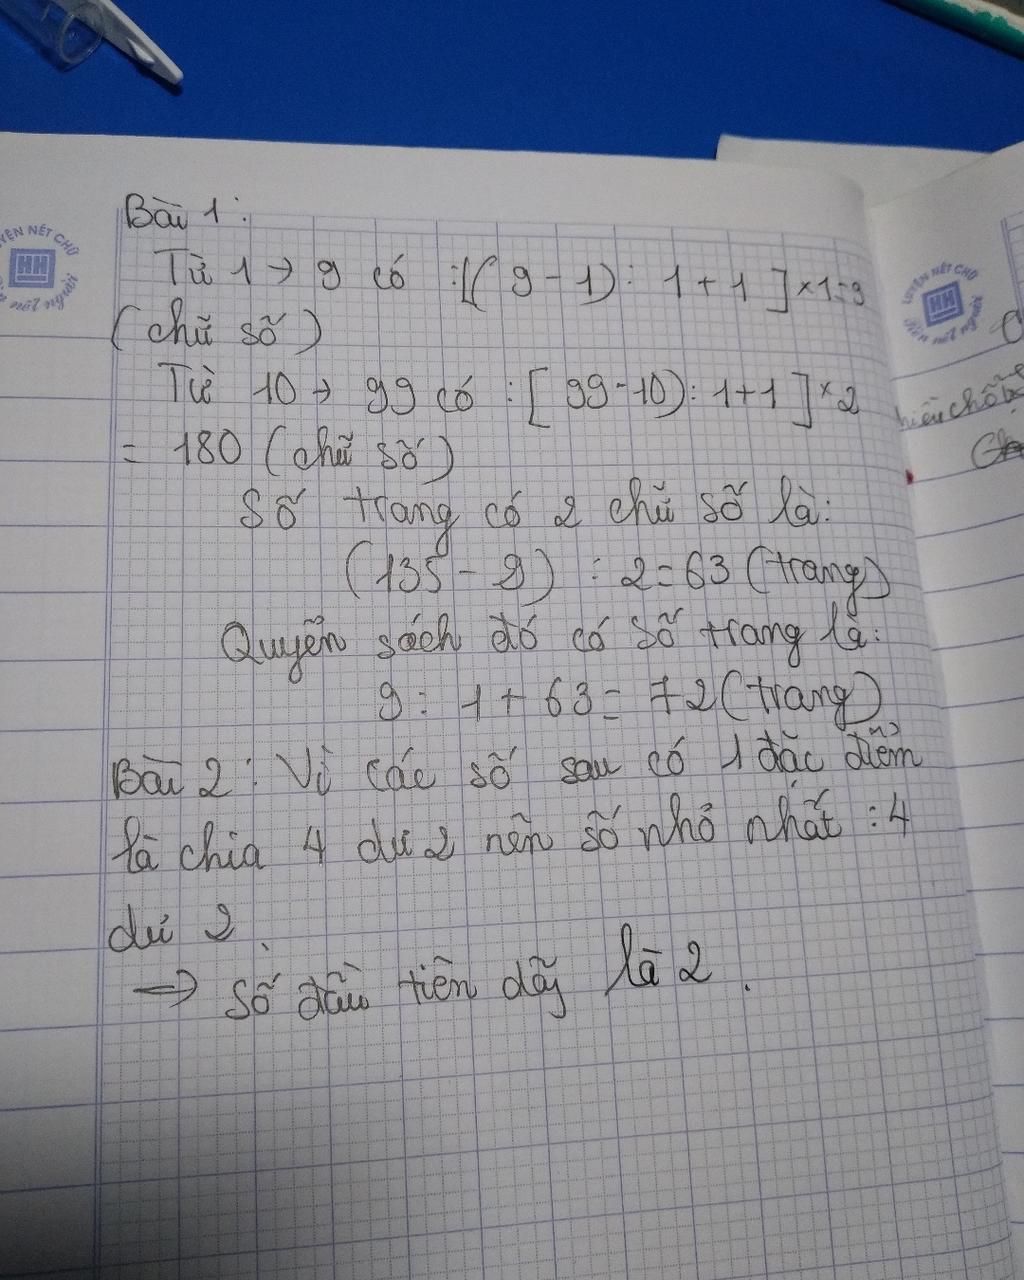 Bài 1:
Từ 1 → 9 có :[(9 - 1) : 1 + 1] × 1 = 9
(chữ số)
Từ 10 → 99 có : [99 - 10) : 1 + 1] × 2
= 180 (chữ số)
Số trang có 2 chữ số là:
(135 - 9) : 2 = 63 (trang)
Quyển sách đó có số trang là:
9 : 1 + 63 = 72 (trang)
Bài 2: Vì các số sau có 1 đặc điểm
là chia 4 dư 2 nên số nhỏ nhất : 4
dư 2
→ Số đầu tiên dãy là 2.
LUYỆN NÉT CHỮ
HH
Rèn nết người
LUYỆN NÉT CHỮ
HH
Rèn nết người